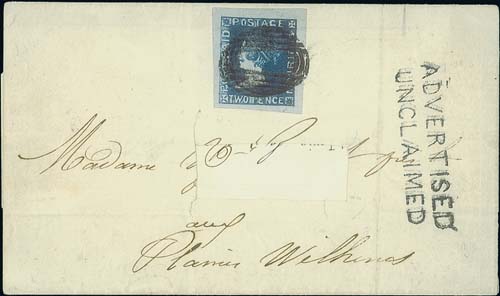 POSTAGE
TWO PENCE
ADVERTISED
UNCLAIMED
Madame
aux
Plaines Wilhems